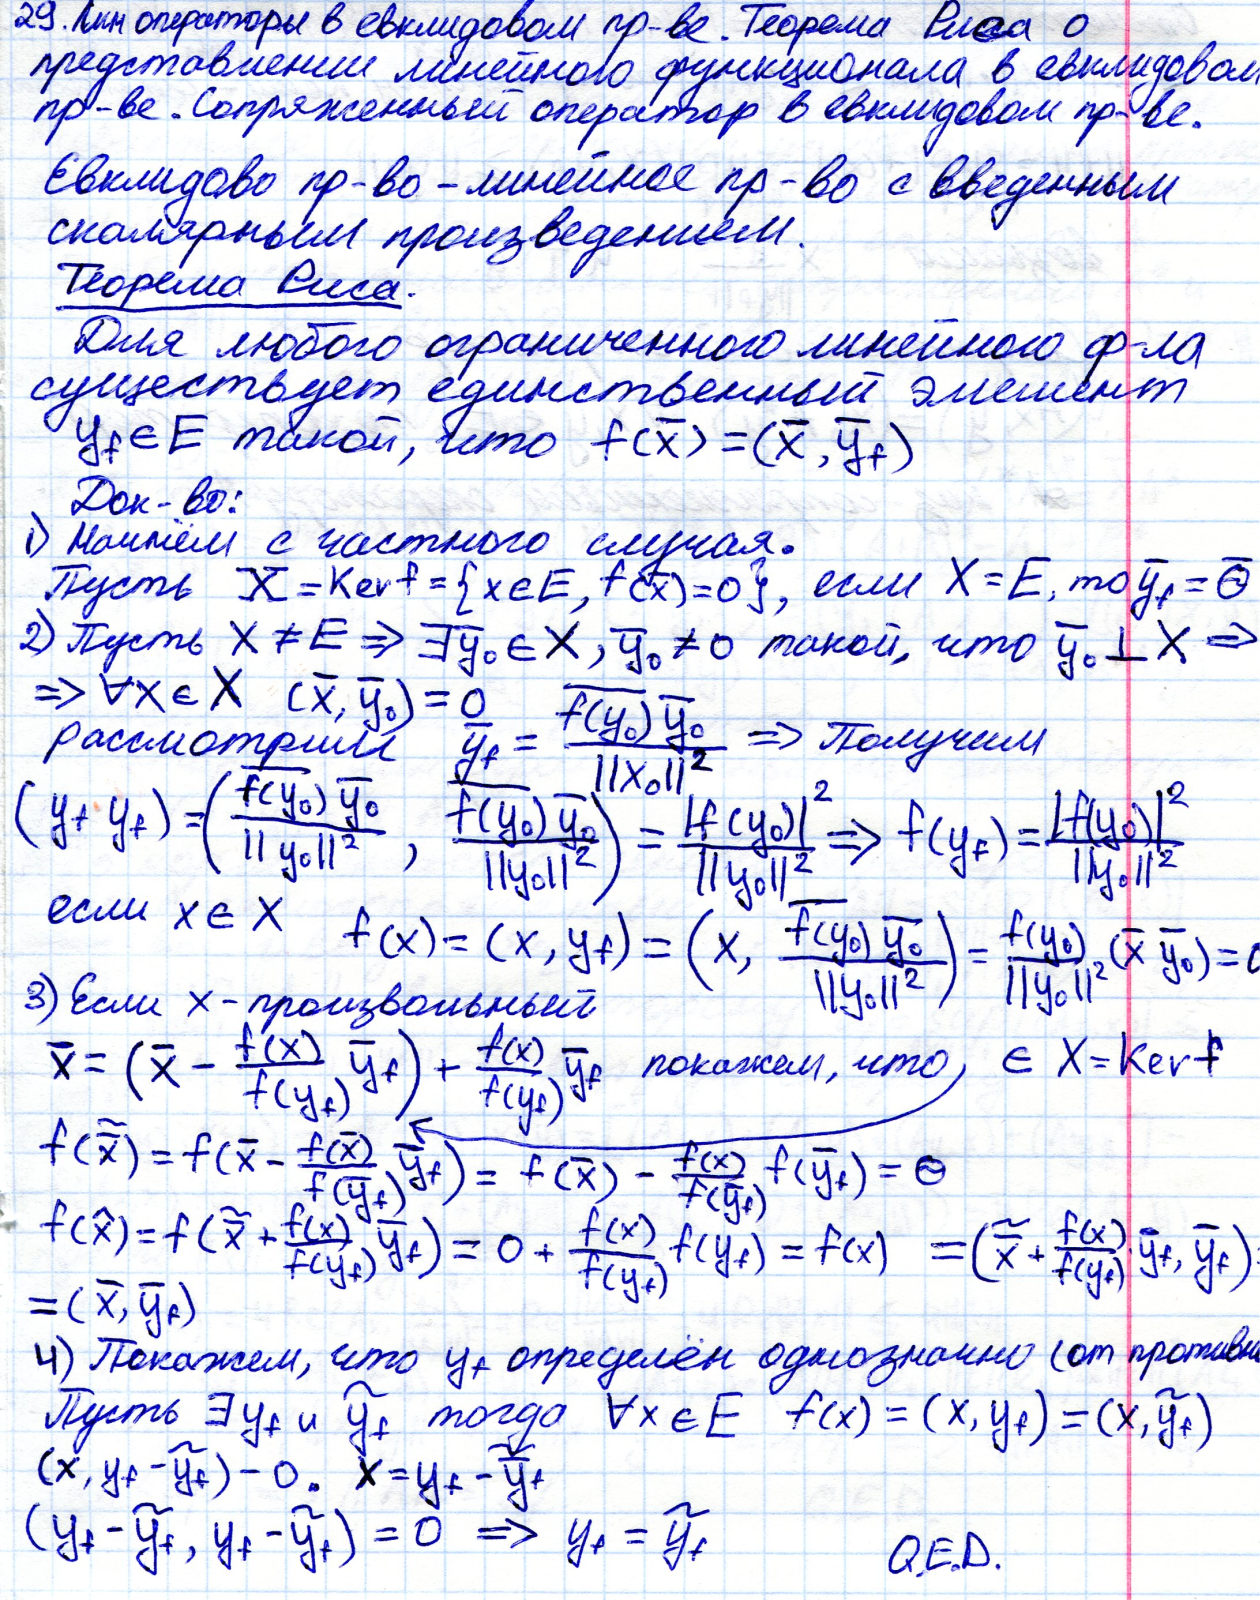 29. Лин операторы в евклидовом пр-ве. Теорема Рисса о
представлении линейного функционала в евклидовом
пр-ве. Сопряженный оператор в евклидовом пр-ве.
Евклидово пр-во - линейное пр-во с введенным
скалярным произведением.
Теорема Риса.
Для любого ограниченного линейного ф-ла
существует единственный элемент
y_f ∈ E такой, что f(x̄) = (x̄, ȳ_f)
Док-во:
1) Начнём с частного случая.
Пусть X̄ = Ker f = {x ∈ E, f(x̄) = 0}, если X = E, то ȳ_f = Θ̄
2) Пусть X ≠ E => ∃ȳ₀ ∈ X, ȳ₀ ≠ 0 такой, что ȳ₀ ⊥ X =>
=> ∀x ∈ X (x̄, ȳ₀) = 0
рассмотрим ȳ_f = \overline{f(y₀)} ȳ₀ / ||x₀||² => Получим
(y_f y_f) = (\overline{f(y₀)} ȳ₀ / ||y₀||², \overline{f(y₀)} ȳ₀ / ||y₀||²) = |f(y₀)|² / ||y₀||² => f(y_f) = |f(y₀)|² / ||y₀||²
если x ∈ X f(x) = (x, y_f) = (x, \overline{f(y₀)} ȳ₀ / ||y₀||²) = f(y₀) / ||y₀||² (x̄ ȳ₀) = 0
3) Если x - произвольный
x̄ = (x̄ - f(x)/f(y_f) ȳ_f) + f(x)/f(y_f) ȳ_f покажем, что ∈ X = Ker f
f(x̃) = f(x̄ - f(x̄)/f(ȳ_f) ȳ_f) = f(x̄) - f(x)/f(ȳ_f) f(ȳ_f) = Θ
f(x̂) = f(x̃ + f(x)/f(y_f) ȳ_f) = 0 + f(x)/f(y_f) f(y_f) = f(x) = (x̃ + f(x)/f(y_f) ȳ_f, ȳ_f) =
= (x̄, ȳ_f)
4) Покажем, что y_f определён однозначно (от противн
Пусть ∃ y_f и ỹ_f тогда ∀x ∈ E f(x) = (x, y_f) = (x, ỹ_f)
(x, y_f - ỹ_f) - 0. x = y_f - ỹ_f
(y_f - ỹ_f, y_f - ỹ_f) = 0 => y_f = ỹ_f
Q.E.D.